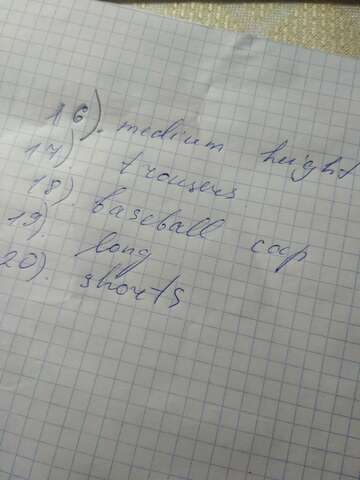 16). medium height
17). trousers
18). baseball cap
19). long
20). shorts